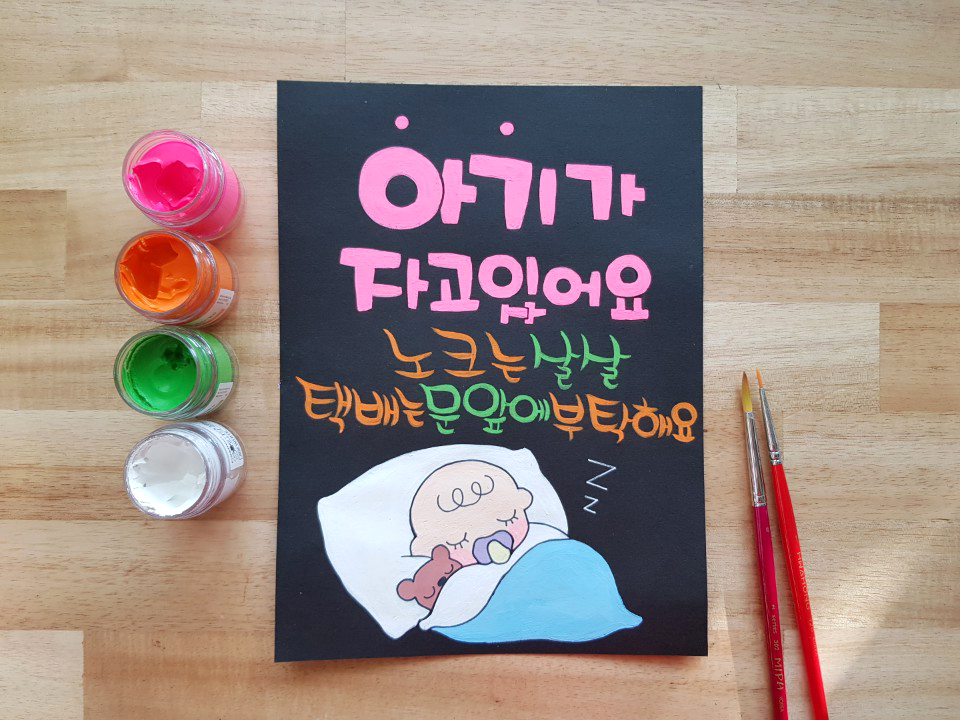 아기가
자고있어요
노크는 살살
택배는 문앞에 부탁해요
Z
Z